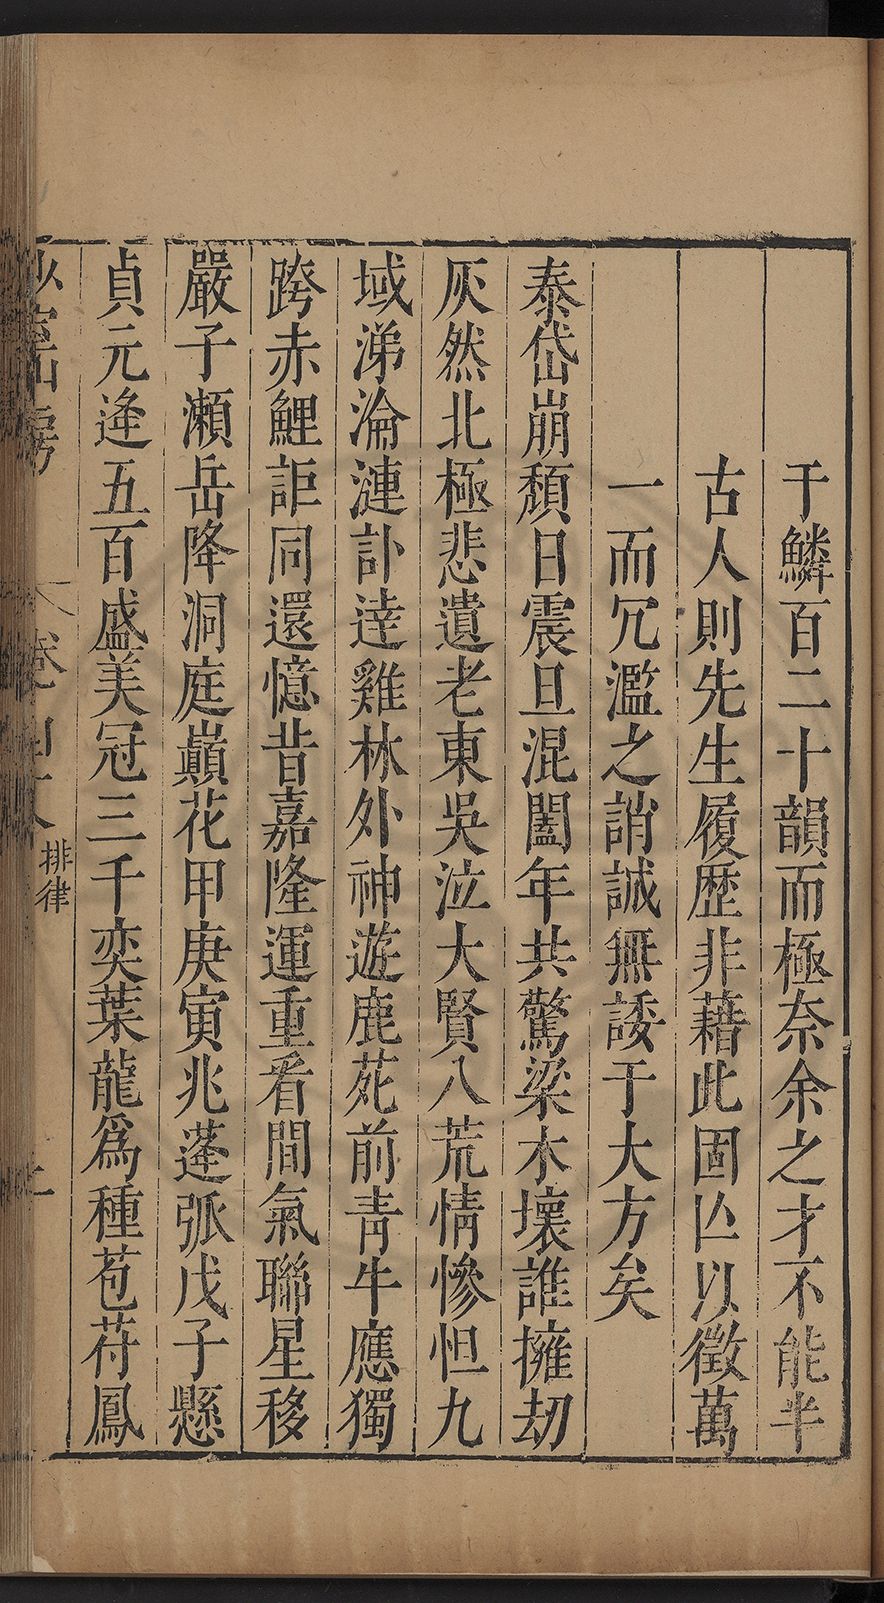 于鱗百二十韻而極奈余之才不能半
古人則先生履歷非藉此固亾以徵萬
一而冗濫之誚誠無諉于大方矣
泰岱崩頹日震旦混闔年共驚梁木壞誰擁刧
灰然北極悲遺老東吳泣大賢八荒情慘怛九
域涕淪漣訃逹雞林外神遊鹿苑前靑牛應獨
跨赤鯉詎同還憶昔嘉隆運重看間氣聯星移
嚴子瀨岳降洞庭巔花甲庚寅兆蓬弧戊子懸
貞元逢五百盛美冠三千奕葉龍爲種苞苻鳳
排律